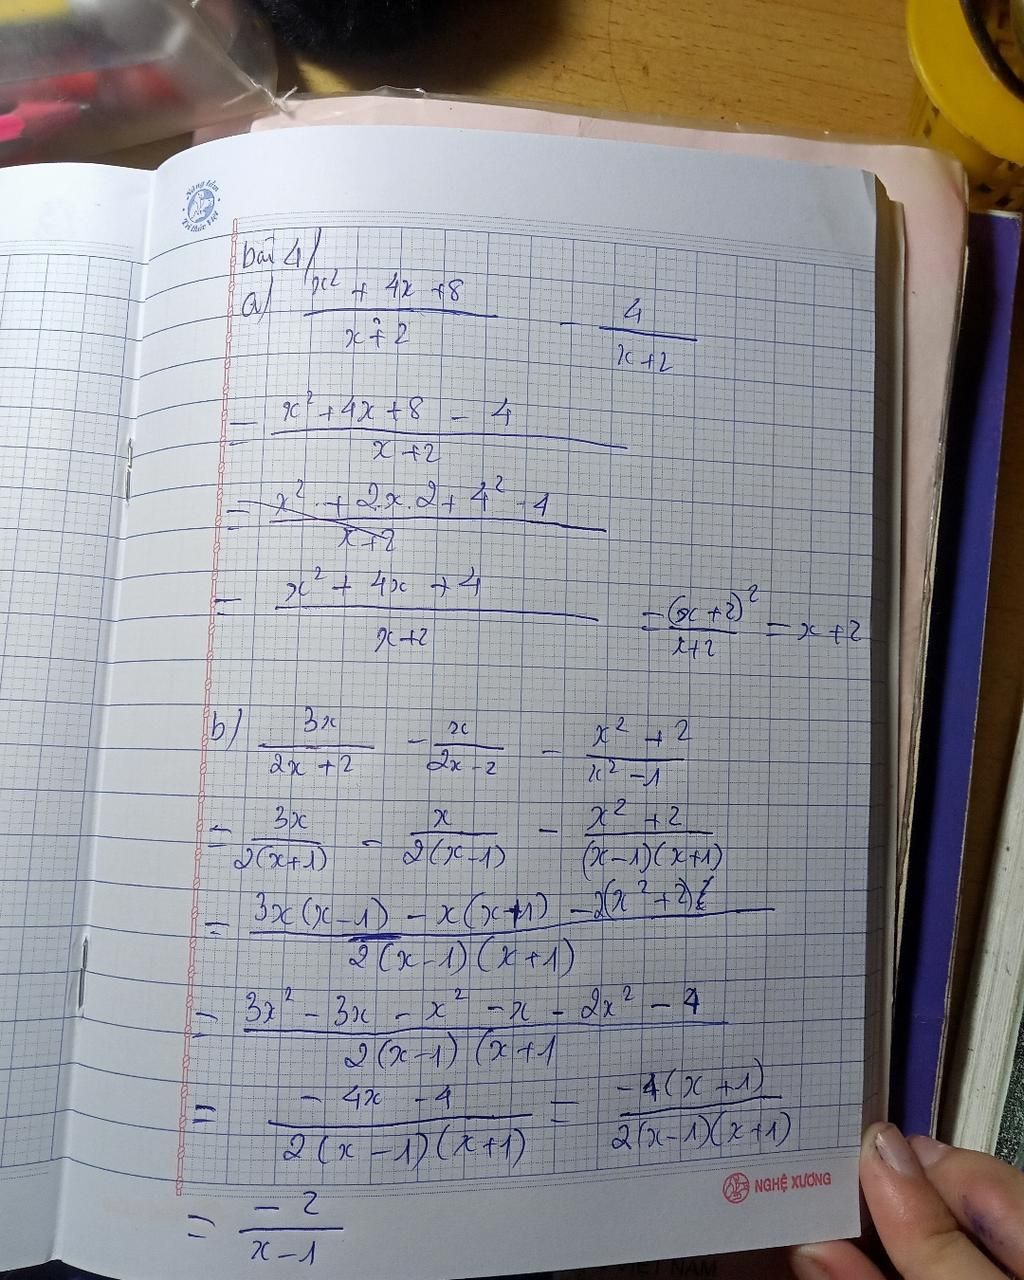 Nâng tầm
Trí thức Việt
bài 4/
a) (x² + 4x + 8)/(x + 2) - 4/(x+2)
= (x² + 4x + 8 - 4)/(x+2)
= (x² + 2x.2 + 4² - 4)/(x+2)
= (x² + 4x + 4)/(x+2) = (x+2)²/(x+2) = x+2
b) 3x/(2x+2) - x/(2x-2) - (x² + 2)/(x² - 1)
= 3x/(2(x+1)) - x/(2(x-1)) - (x² + 2)/((x-1)(x+1))
= (3x(x-1) - x(x+1) - 2(x²+2))/(2(x-1)(x+1))
= (3x² - 3x - x² - x - 2x² - 4)/(2(x-1)(x+1
= (-4x - 4)/(2(x-1)(x+1)) = (-4(x+1))/(2(x-1)(x+1))
NGHỆ XƯƠNG
= -2/(x-1)
VIỆT NAM